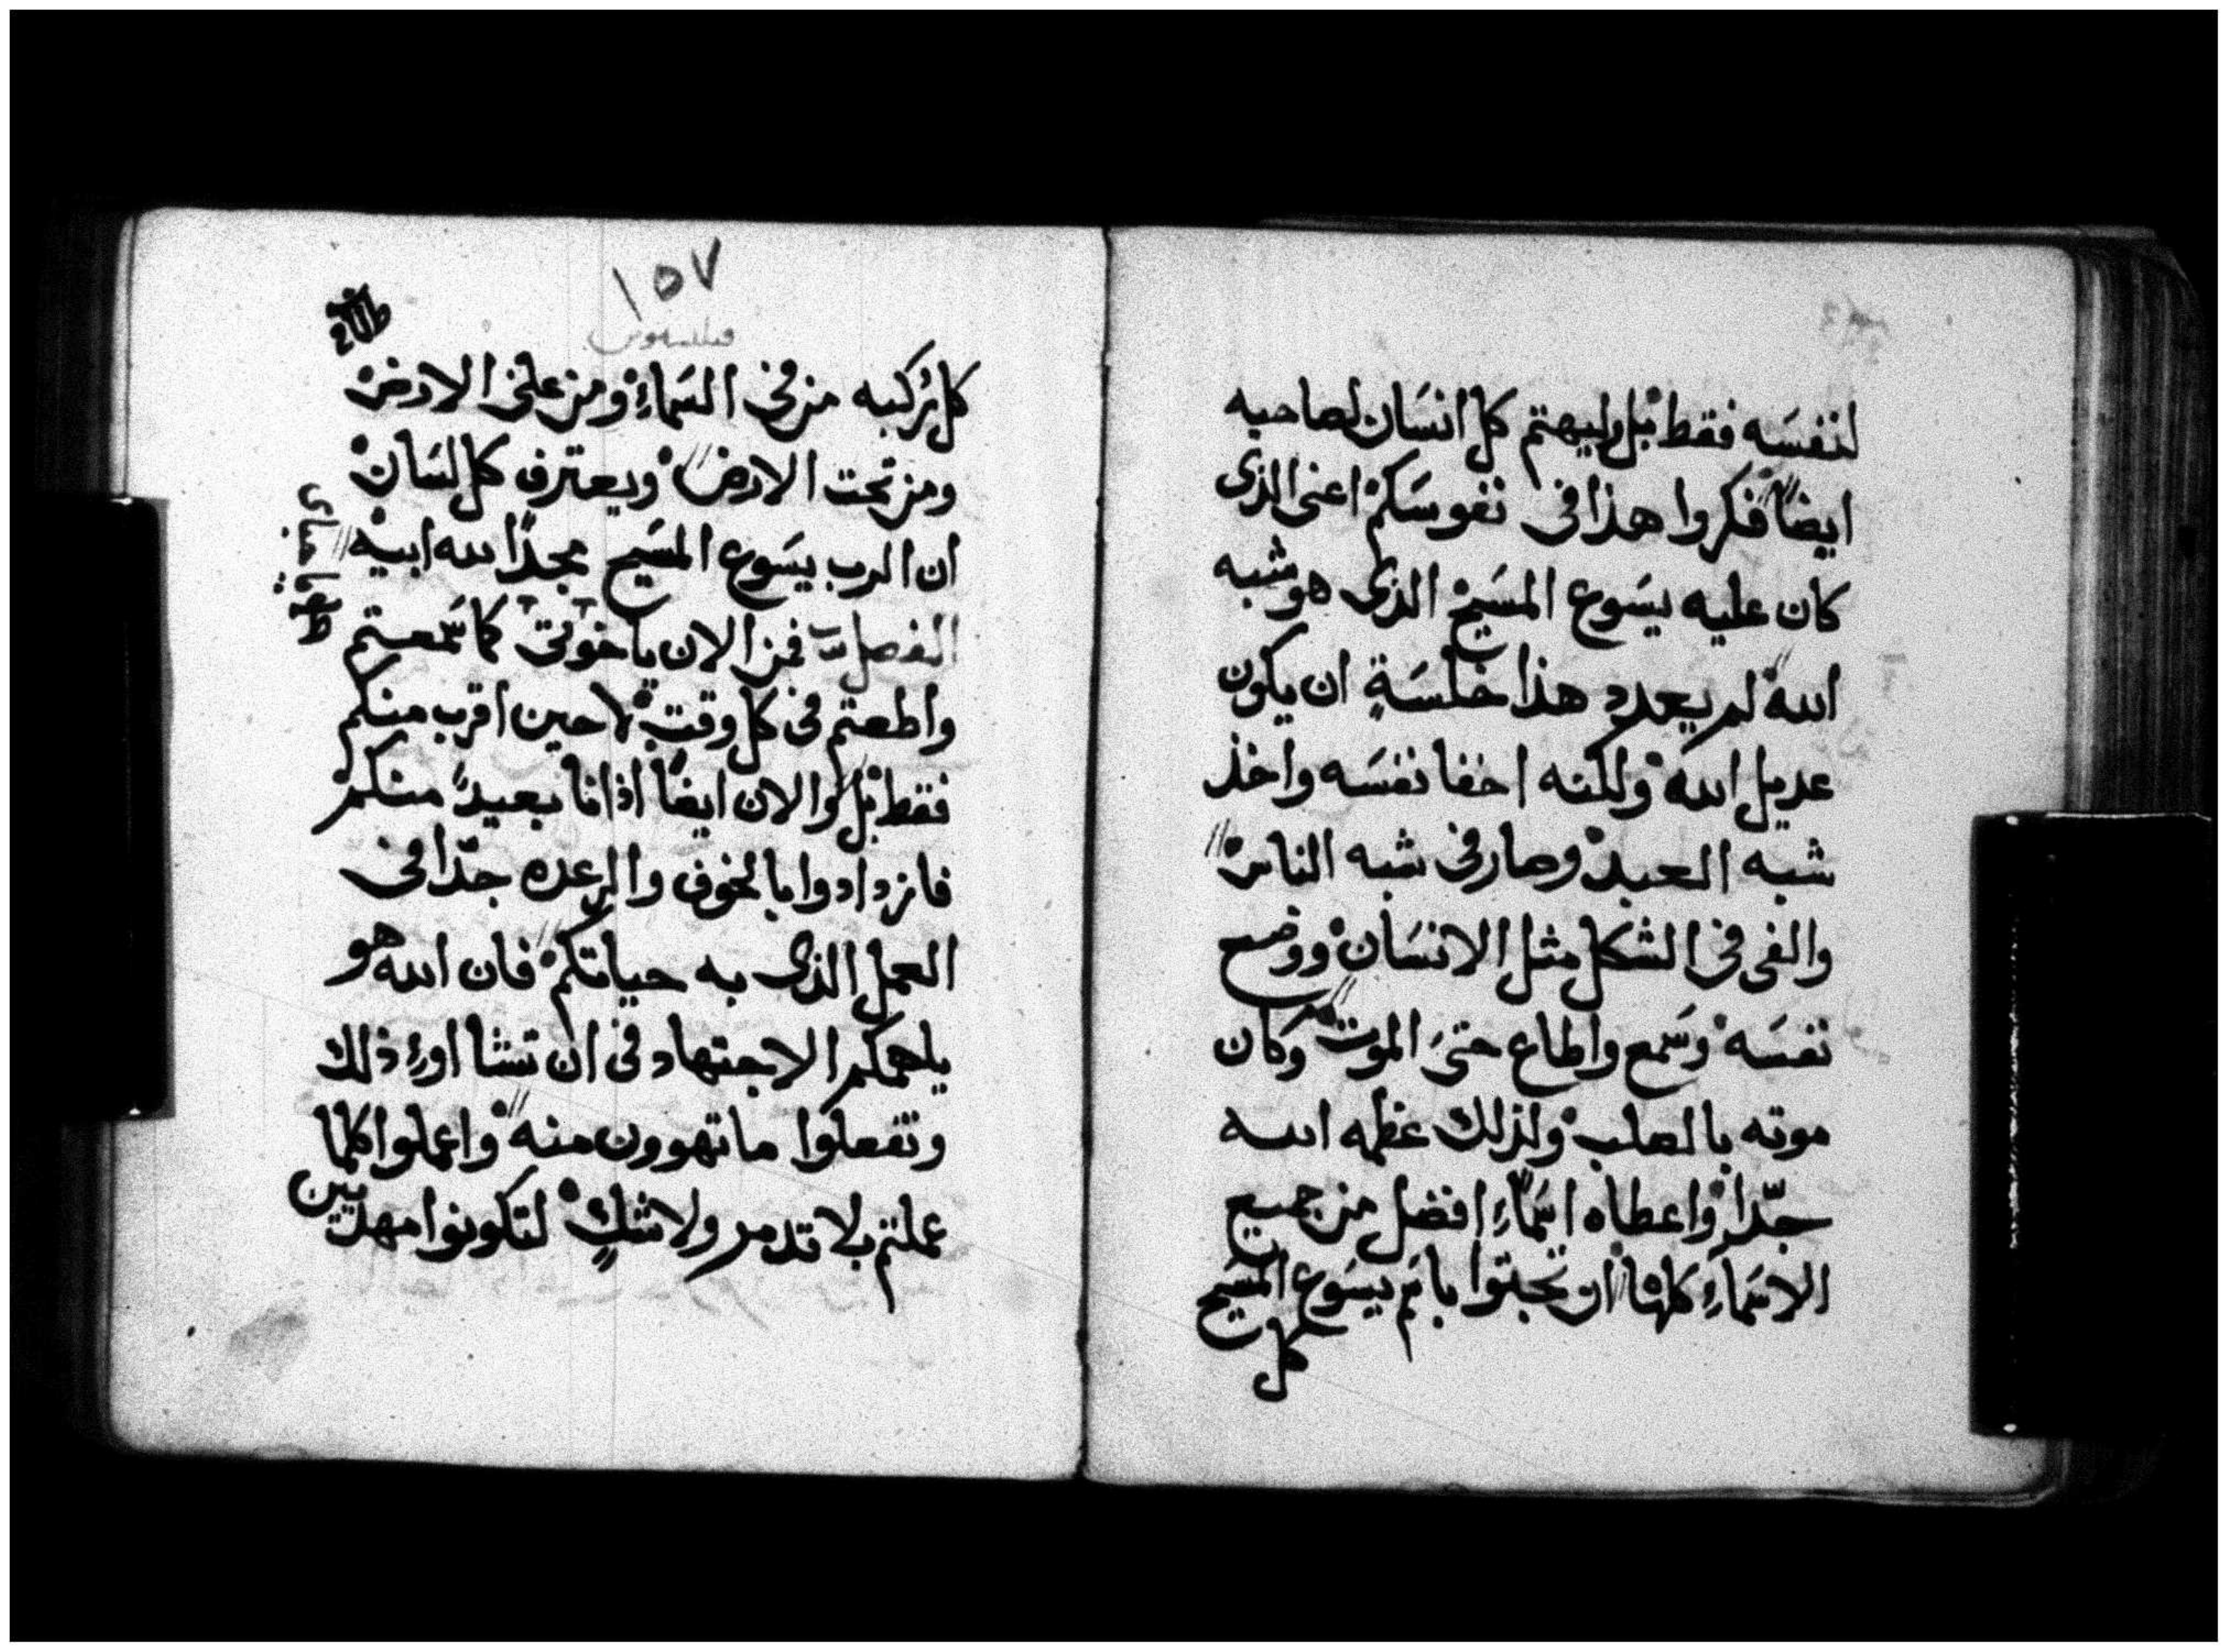 لنفسَه فقط بل وليهتم كل انسَان لصاحبه
ايضاً فكروا هذا فى نفوسَكم اعنى الذى
كان عليه يسَوع المسَيح الذى هو شبه
الله لم يعدد هذا خلسَةٍ ان يكون
عديل الله ولكنه اخفا نفسَه واخذ
شبه العبد وصار فى شبه الناس
والفى فى الشكل مثل الانسَان ووضع
نفسَه وسَمع واطاع حتىَ الموت وكان
موته بالصلب ولذلك عظمه الله
جدّاً واعطاه اسَماءِ افضل من جميع
الاسَماءِ كلها ان تجثوا باسَم يسَوع المسَيح
كل
١٥٧
فيلبسيوس
كل رُكبه من فى السَماءِ ومن على الارض
ومن تحت الارض ويعترف كل لسَان
ان الرب يسَوع المسَيح مجداً لله ابيه
الفصل فمن الان ياخوتى كما سَمعتم
واطعتم فى كل وقت لا حين اقرب منكم
فقط بل والان ايضاً اذ انا بعيدً منكم
فازدادوا بالخوف والرعده جدّا فى
العمل الذى به حياتكم فان الله هو
يلهمكم الاجتهاد فى ان تشااورءِ ذلك
وتفعلوا ما تهوون منه واعملوا كلما
عملتم بلا تدمر ولا شكٍ لتكونوا مهديين